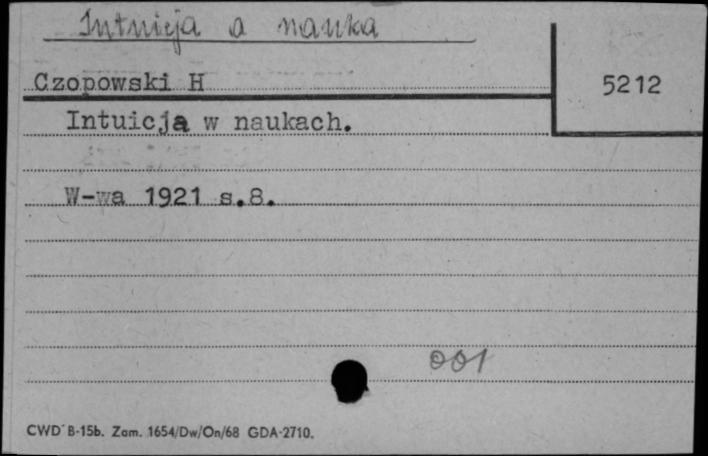 Intuicja a nauka
Czopowski H
5212
Intuicja w naukach.
W-wa 1921 s.8.
001
CWD B-15b. Zam. 1654/Dw/On/68 GDA-2710.